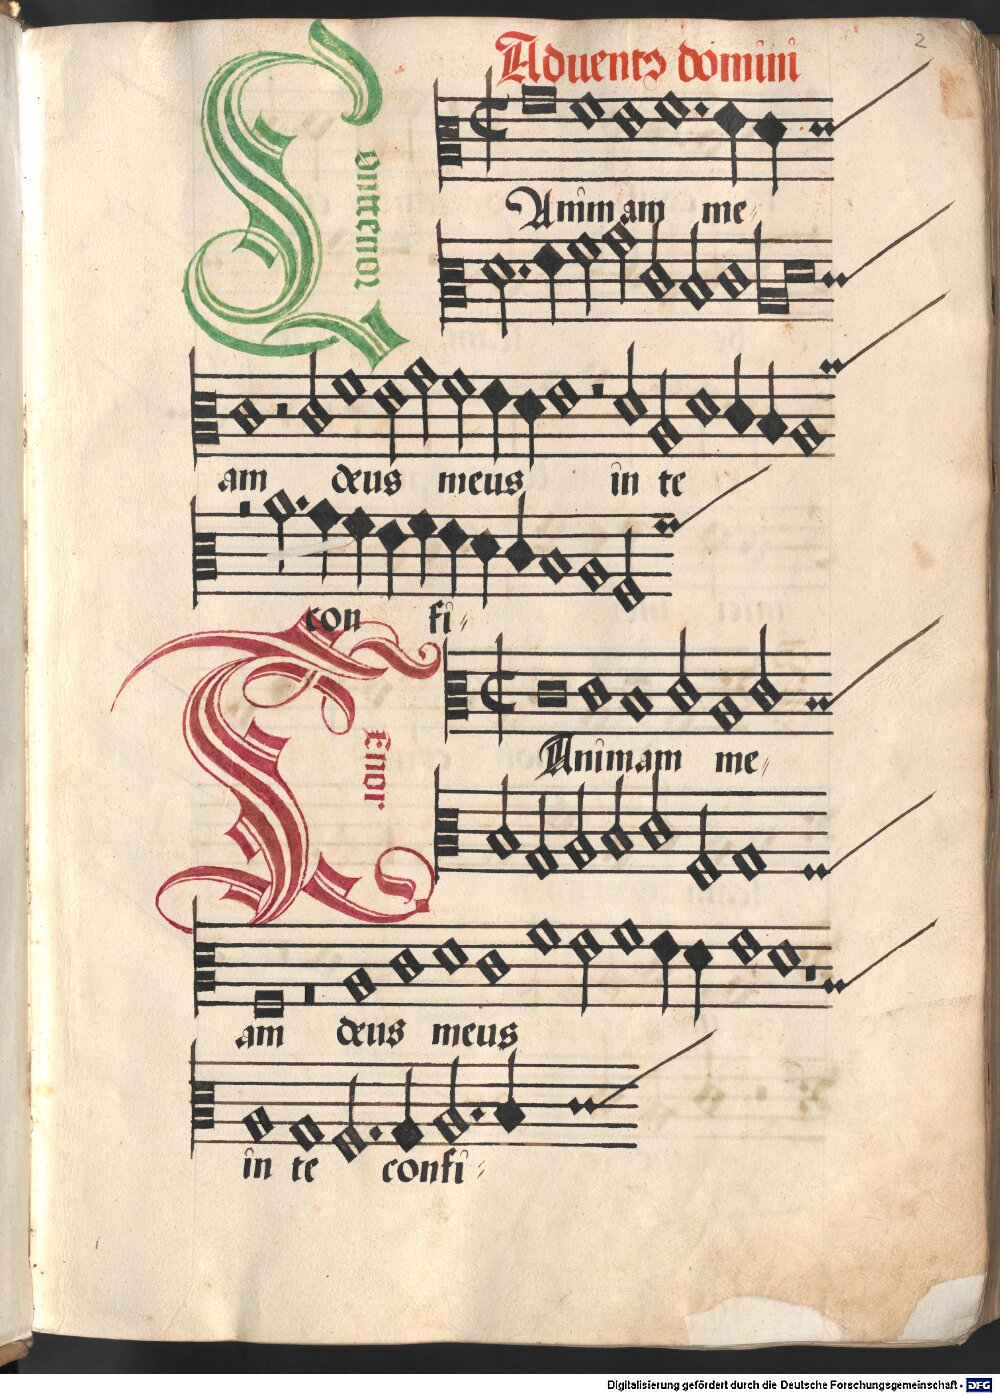 2
Aduents domini
Animam me
am deus meus in te
con fi
Enor
Animam me
am deus meus
in te confi
Digitalisierung gefördert durch die Deutsche Forschungsgemeinschaft - DFG